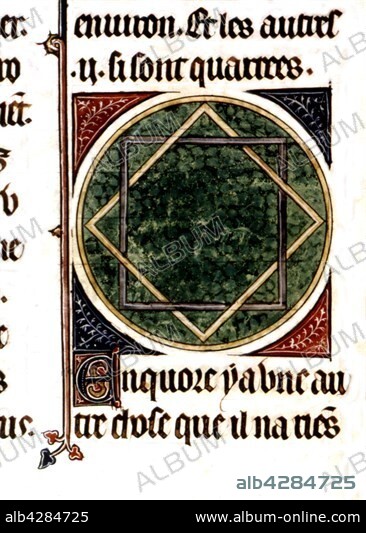 enuiron. Et les autres
.ii. si sont quarrees.
Enquore y a vne au
tre chose que il na
ALBUM
alb4284725
alb4284725
www.album-online.com